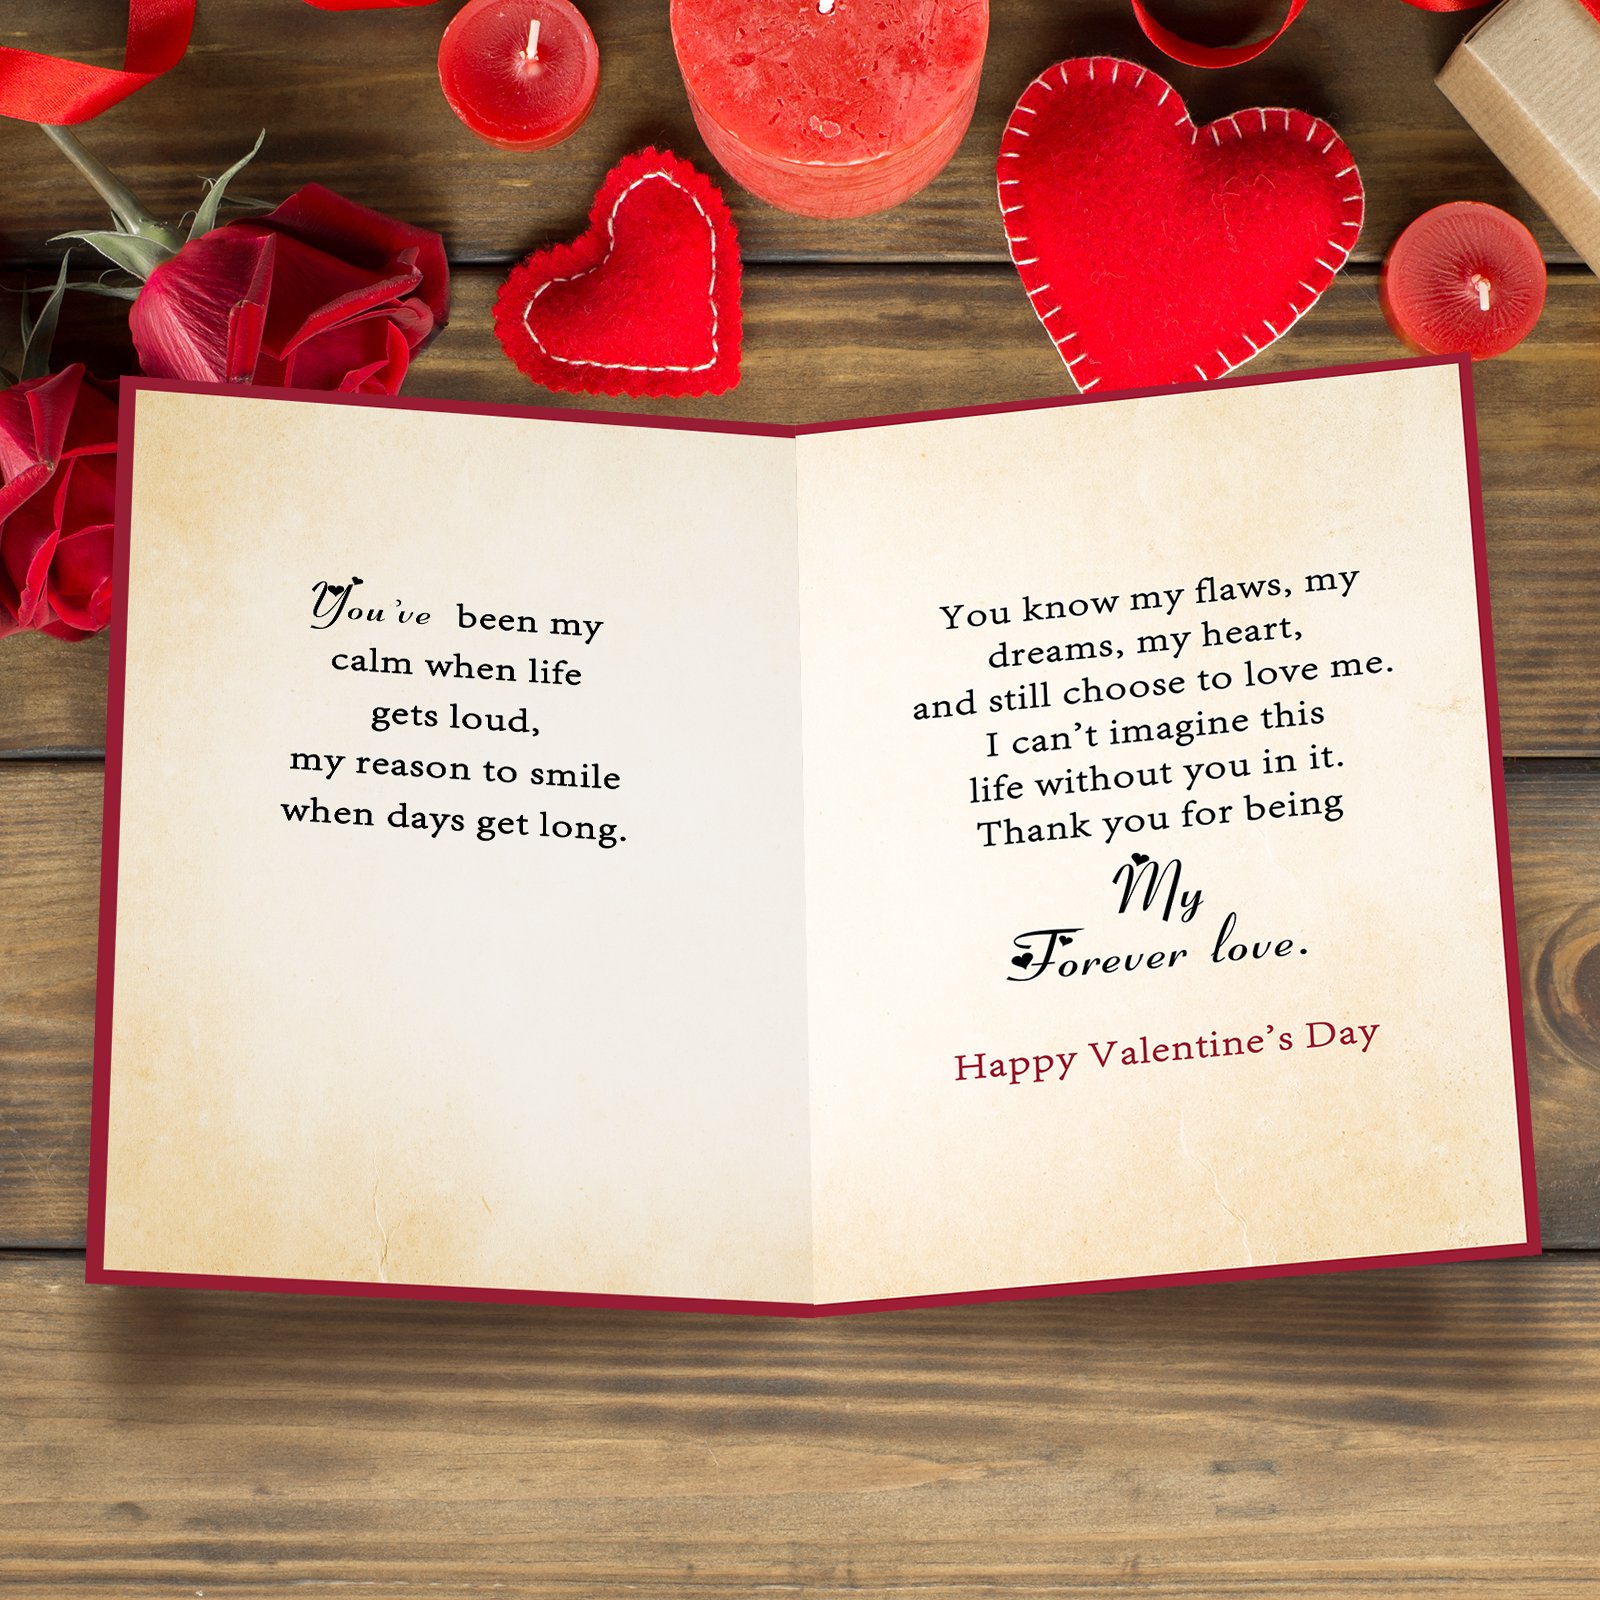 You've been my
calm when life
gets loud,
my reason to smile
when days get long.
You know my flaws, my
dreams, my heart,
and still choose to love me.
I can't imagine this
life without you in it.
Thank you for being
My
Forever love.
Happy Valentine's Day